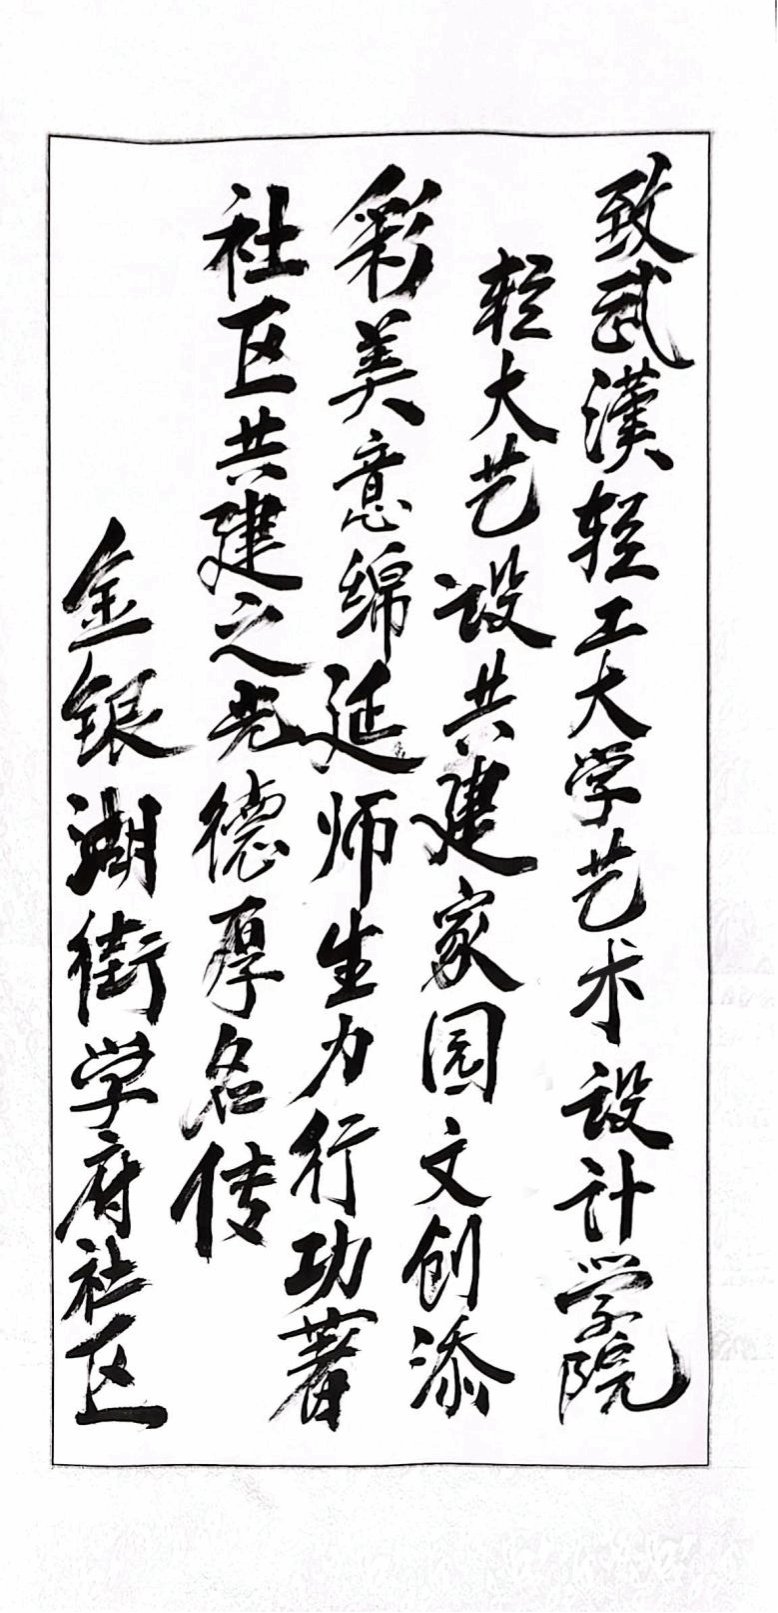 致武漢轻工大学艺术设计学院
轻大艺设共建家园文创添
彩美意绵延师生力行功著
社区共建之光德厚名传
金银湖街学府社区